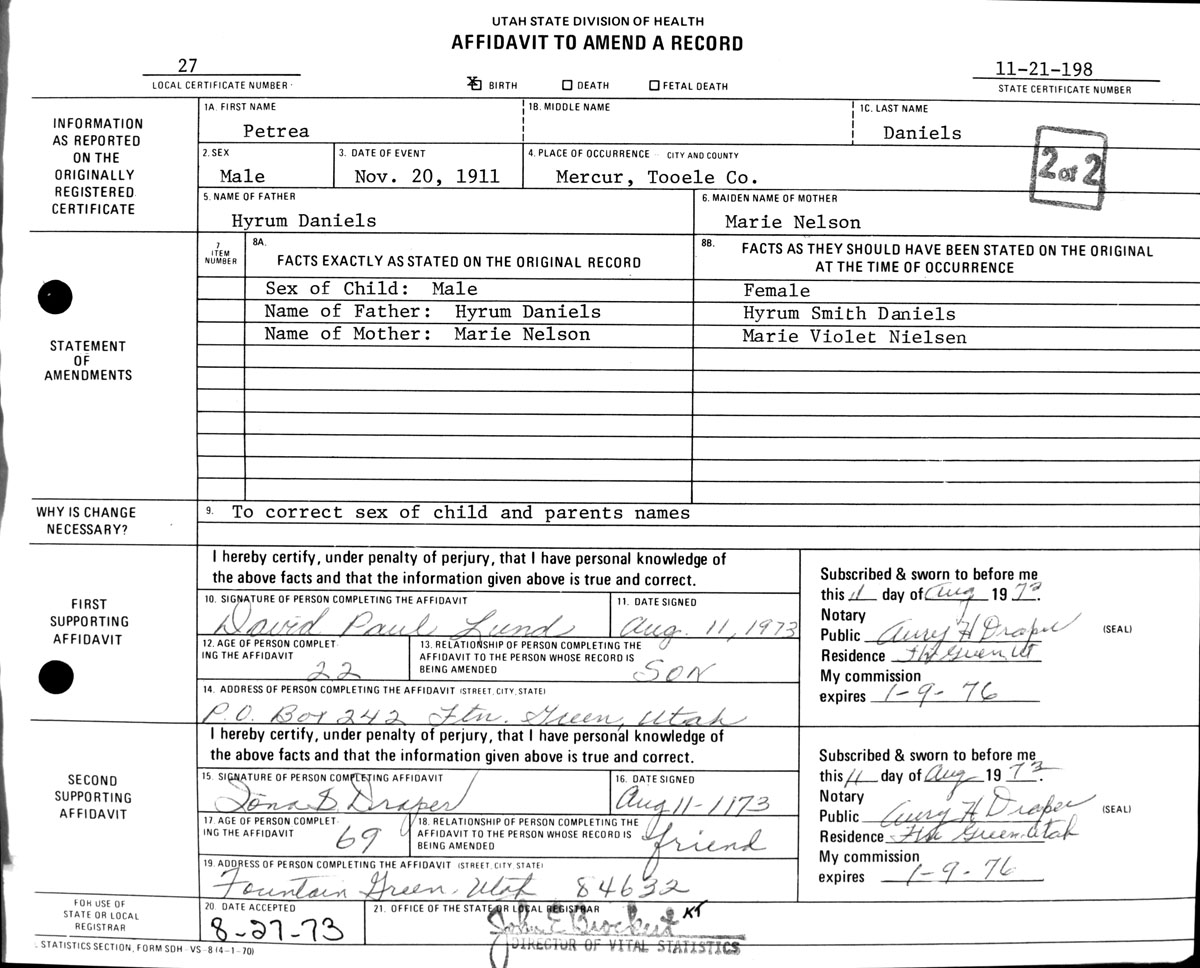 UTAH STATE DIVISION OF HEALTH
AFFIDAVIT TO AMEND A RECORD
27
LOCAL CERTIFICATE NUMBER
X BIRTH DEATH FETAL DEATH
11-21-198
STATE CERTIFICATE NUMBER
INFORMATION
AS REPORTED
ON THE
ORIGINALLY
REGISTERED
CERTIFICATE
1A. FIRST NAME 1B. MIDDLE NAME 1C. LAST NAME
Petrea Daniels
2. SEX 3. DATE OF EVENT 4. PLACE OF OCCURRENCE CITY AND COUNTY
Male Nov. 20, 1911 Mercur, Tooele Co.
2 of 2
5. NAME OF FATHER 6. MAIDEN NAME OF MOTHER
Hyrum Daniels Marie Nelson
STATEMENT
OF
AMENDMENTS
7
ITEM
NUMBER
8A.
FACTS EXACTLY AS STATED ON THE ORIGINAL RECORD
8B. FACTS AS THEY SHOULD HAVE BEEN STATED ON THE ORIGINAL
AT THE TIME OF OCCURRENCE
Sex of Child: Male Female
Name of Father: Hyrum Daniels Hyrum Smith Daniels
Name of Mother: Marie Nelson Marie Violet Nielsen
WHY IS CHANGE
NECESSARY?
9. To correct sex of child and parents names
FIRST
SUPPORTING
AFFIDAVIT
I hereby certify, under penalty of perjury, that I have personal knowledge of
the above facts and that the information given above is true and correct.
10. SIGNATURE OF PERSON COMPLETING THE AFFIDAVIT 11. DATE SIGNED
David Paul Lund Aug. 11, 1973
12. AGE OF PERSON COMPLET-
ING THE AFFIDAVIT
22
13. RELATIONSHIP OF PERSON COMPLETING THE
AFFIDAVIT TO THE PERSON WHOSE RECORD IS
BEING AMENDED
SON
14. ADDRESS OF PERSON COMPLETING THE AFFIDAVIT (STREET, CITY, STATE)
P.O. Box 242 Ftn. Green, Utah
Subscribed & sworn to before me
this 11 day of Aug 19 73.
Notary
Public H Draper (SEAL)
Residence Ftn Green Ut
My commission
expires 1-9-76
SECOND
SUPPORTING
AFFIDAVIT
I hereby certify, under penalty of perjury, that I have personal knowledge of
the above facts and that the information given above is true and correct.
15. SIGNATURE OF PERSON COMPLETING AFFIDAVIT 16. DATE SIGNED
Draper Aug 11-1173
17. AGE OF PERSON COMPLET-
ING THE AFFIDAVIT
69
18. RELATIONSHIP OF PERSON COMPLETING THE
AFFIDAVIT TO THE PERSON WHOSE RECORD IS
BEING AMENDED
friend
19. ADDRESS OF PERSON COMPLETING THE AFFIDAVIT (STREET, CITY, STATE)
Fountain Green, Utah 84632
Subscribed & sworn to before me
this 11 day of Aug 19 73.
Notary
Public H Draper (SEAL)
Residence Ftn Green Utah
My commission
expires 1-9-76
FOR USE OF
STATE OR LOCAL
REGISTRAR
20. DATE ACCEPTED 21. OFFICE OF THE STATE OR LOCAL REGISTRAR
8-27-73 John E Brockert KT
DIRECTOR OF VITAL STATISTICS
STATISTICS SECTION, FORM SDH - VS - 8 (4-1-70)